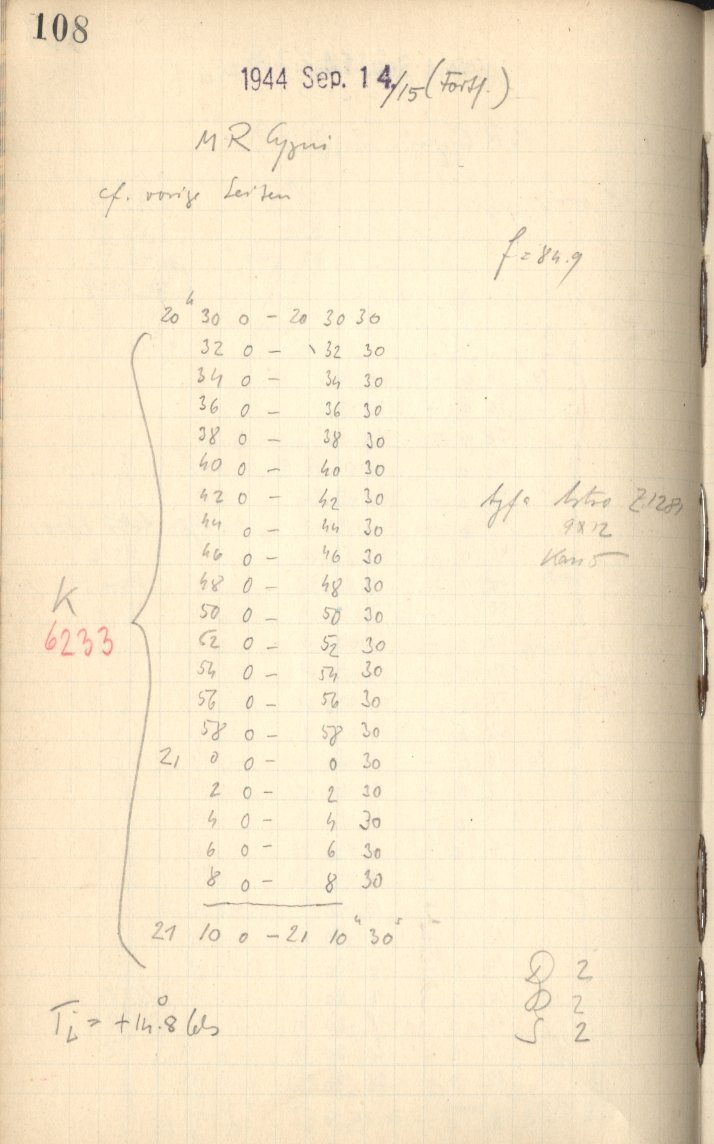 108
1944 Sep. 14./15 (Forts.)
MR Cygni
cf. vorige Seiten
f = 84.9
20ʰ 30 0 – 20 30 30
32 0 – 32 30
34 0 – 34 30
36 0 – 36 30
38 0 – 38 30
40 0 – 40 30
42 0 – 42 30
44 0 – 44 30
46 0 – 46 30
48 0 – 48 30
50 0 – 50 30
52 0 – 52 30
54 0 – 54 30
56 0 – 56 30
58 0 – 58 30
21 0 0 – 0 30
2 0 – 2 30
4 0 – 4 30
6 0 – 6 30
8 0 – 8 30
21 10 0 – 21 10ᵐ 30ˢ
K
6233
Agfa Astro Z1281
9x12
Kart 5
Tᵢ = +14.°8 Cels
D 2
D 2
S 2